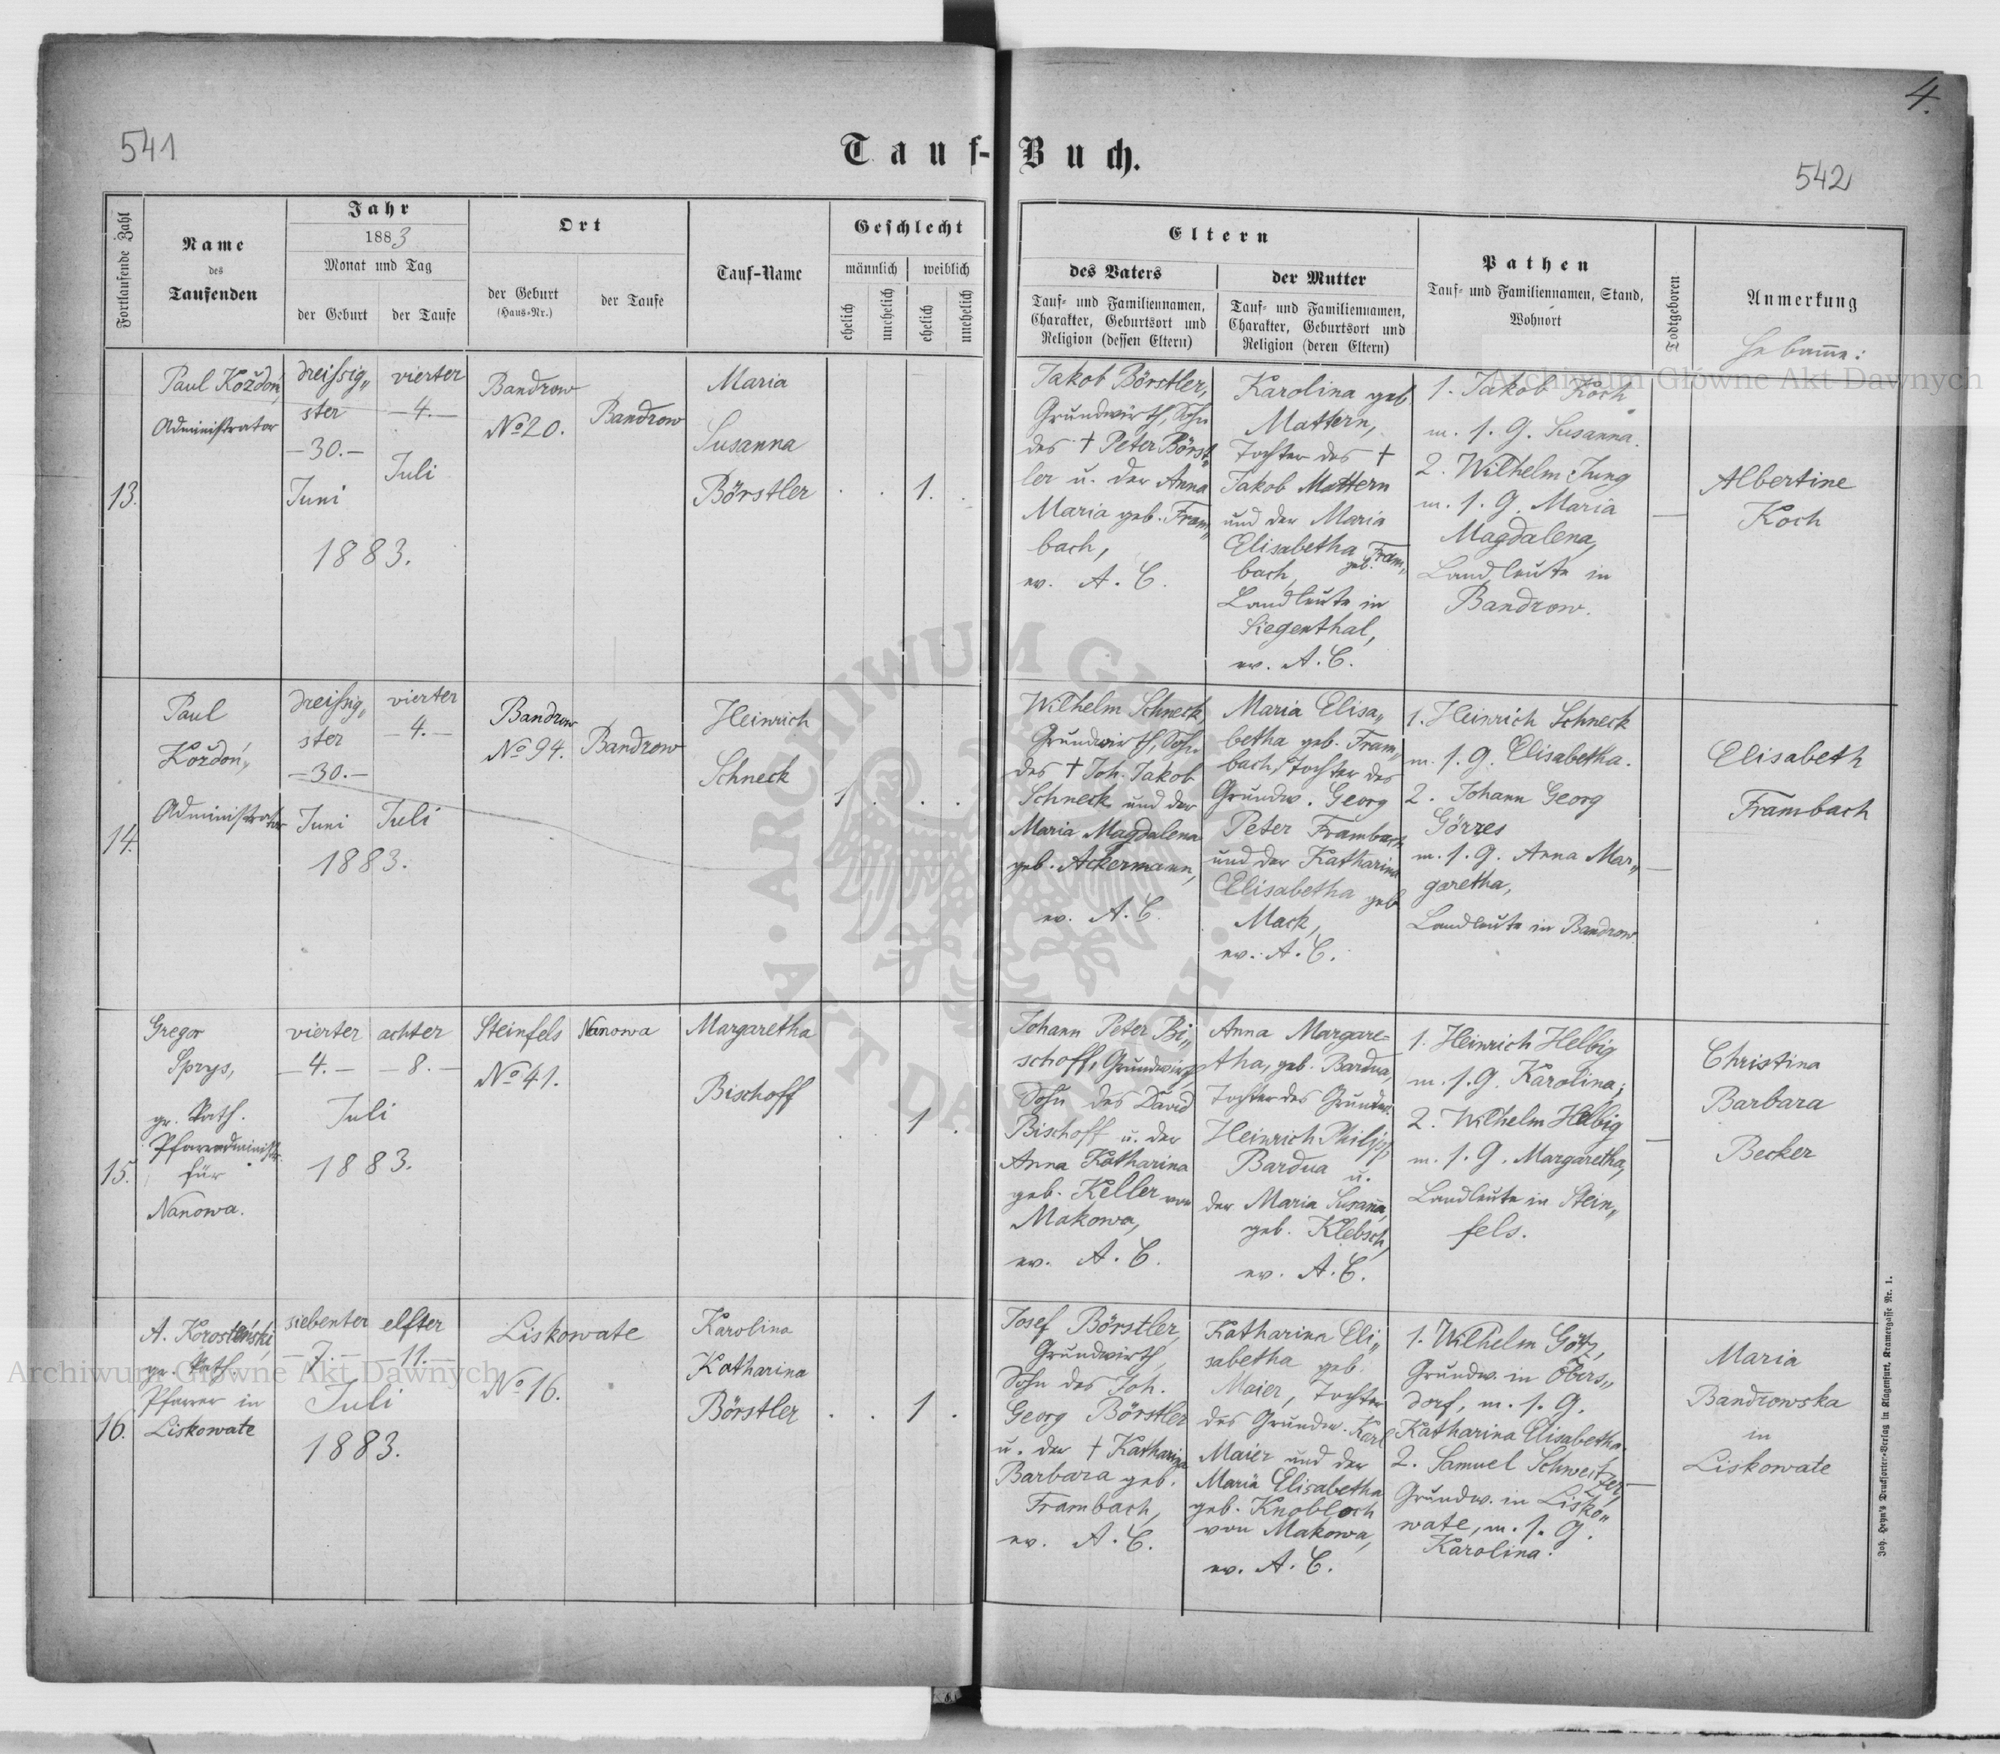 541
4.
Tauf-Buch.
542
Fortlaufende Zahl
Name
des
Taufenden
Jahr
1883
Monat und Tag
der Geburt
der Taufe
Ort
der Geburt
(Haus-Nr.)
der Taufe
Tauf-Name
Geschlecht
männlich
weiblich
ehelich
unehelich
ehelich
unehelich
Eltern
des Vaters
Tauf- und Familiennamen,
Charakter, Geburtsort und
Religion (dessen Eltern)
der Mutter
Tauf- und Familiennamen,
Charakter, Geburtsort und
Religion (deren Eltern)
Pathen
Tauf- und Familiennamen, Stand,
Wohnort
Todtgeboren
Anmerkung
Hebamme:
13.
Paul Koždoń,
Administrator
dreissig„
ster
—30.—
Juni
1883.
vierter
—4.—
Juli
Bandrow
No 20.
Bandrow
Maria
Susanna
Börstler
1.
Jakob Börstler,
Grundwirth, Sohn
des † Peter Börst„
ler u. der Anna
Maria geb. Fram„
bach,
ev. A. C.
Karolina geb.
Mattern,
Tochter des †
Jakob Mattern
und der Maria
Elisabetha geb. Fram„
bach,
Landleute in
Siegenthal,
ev. A. C.
1. Jakob Koch
m. s. G. Susanna.
2. Wilhelm Jung
m. s. G. Maria
Magdalena,
Landleute in
Bandrow.
Albertine
Koch
14.
Paul
Koždoń,
Administrator
dreissig„
ster
—30.—
Juni
1883.
vierter
—4.—
Juli
Bandrow
No 94.
Bandrow
Heinrich
Schneck
1
Wilhelm Schneck
Grundwirth, Sohn
des † Joh. Jakob
Schneck und der
Maria Magdalena
geb. Ackermann,
ev. A. C.
Maria Elisa„
betha geb. Fram„
bach, Tochter des
Grundw. Georg
Peter Frambach
und der Katharina
Elisabetha geb
Mack,
ev. A. C.
1. Heinrich Schneck
m. s. G. Elisabetha.
2. Johann Georg
Görres
m. s. G. Anna Mar„
garetha,
Landleute in Bandrow.
Elisabeth
Frambach
15.
Gregor
Sprys,
gr. Kath.
Pfarradministr.
für
Nanowa.
vierter
—4.—
achter
—8.—
Juli
1883.
Steinfels
No 41.
Nanowa
Margaretha
Bischoff
1
Johann Peter Bi„
schoff, Grundwirth,
Sohn des David
Bischoff u. der
Anna Katharina
geb. Keller von
Makowa,
ev. A. C.
Anna Margare=
tha, geb. Bardua,
Tochter des Grundw.
Heinrich Philipp
Bardua u.
der Maria Susanna,
geb. Klebsch,
ev. A. C.
1. Heinrich Helbig
m. s. G. Karolina;
2. Wilhelm Helbig
m. s. G. Margaretha,
Landleute in Stein„
fels.
Christina
Barbara
Becker
16.
A. Korosteński,
gr. Kath.
Pfarrer in
Liskowate
siebenter
—7.—
elfter
—11.—
Juli
1883.
Liskowate
No 16.
Karolina
Katharina
Börstler
1
Josef Börstler,
Grundwirth,
Sohn des Joh.
Georg Börstler
u. der † Katharina
Barbara geb.
Frambach,
ev. A. C.
Katharina Eli„
sabetha geb.
Maier, Tochter
des Grundw. Karl
Maier und der
Maria Elisabetha
geb. Knobloch
von Makowa,
ev. A. C.
1. Wilhelm Götz,
Grundw. in Obers„
dorf, m. s. G.
Katharina Elisabetha.
2. Samuel Schweitzer,
Grundw. in Lisko„
wate, m. s. G.
Karolina.
Maria
Bandrowska
in
Liskowate
Joh. Heyn's Drucksorten-Verlag in Klagenfurt, Kramergasse Nr. 1.
Archiwum Główne Akt Dawnych
Archiwum Główne Akt Dawnych